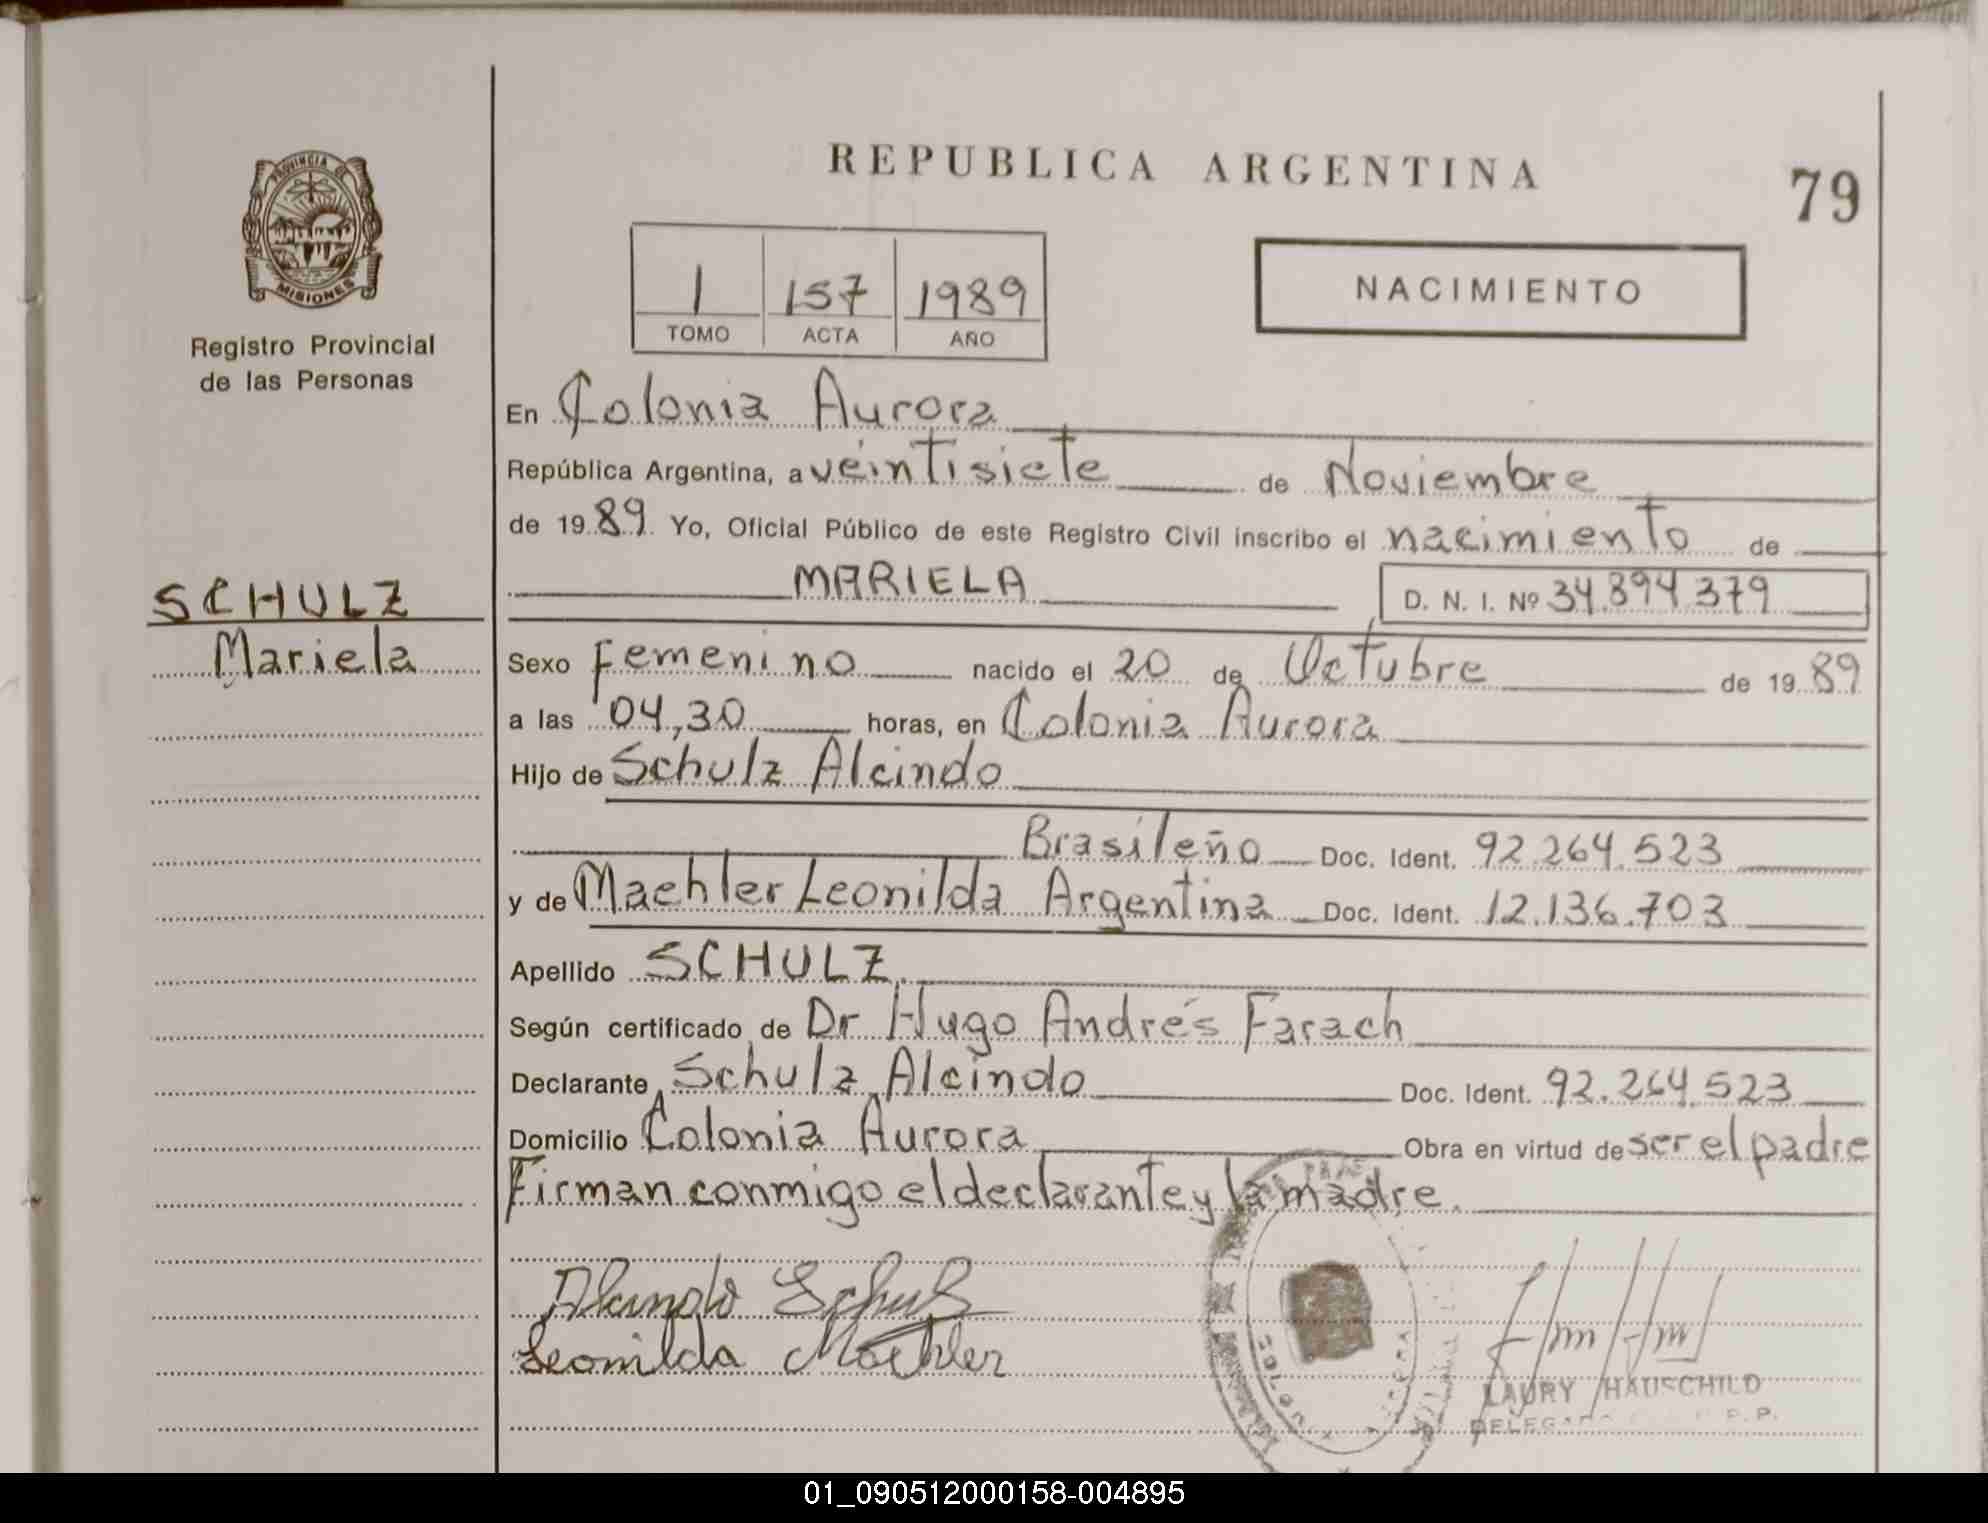 PROVINCIA DE
MISIONES
Registro Provincial
de las Personas
SCHULZ
Mariela
REPUBLICA ARGENTINA
79
1 157 1989
TOMO ACTA AÑO
NACIMIENTO
En Colonia Aurora
República Argentina, a veintisiete de Noviembre
de 1989 Yo, Oficial Público de este Registro Civil inscribo el nacimiento de
MARIELA D. N. I. Nº 34.894.379
Sexo Femenino nacido el 20 de Octubre de 1989
a las 04,30 horas, en Colonia Aurora
Hijo de Schulz Alcindo
Brasileño Doc. Ident. 92.264.523
y de Maehler Leonilda Argentina Doc. Ident. 12.136.703
Apellido SCHULZ
Según certificado de Dr Hugo Andrés Farach
Declarante Schulz Alcindo Doc. Ident. 92.264.523
Domicilio Colonia Aurora Obra en virtud de ser el padre
Firman conmigo el declarante y la madre.
Alcindo Schulz
Leonilda Maehler
LAURY HAUSCHILD
01_090512000158-004895